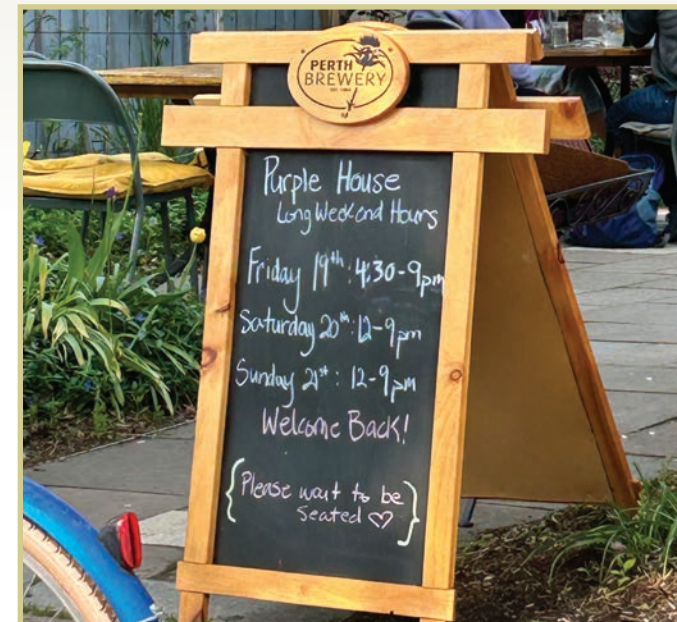 PERTH
BREWERY
Purple House
Long Weekend Hours
Friday 19th: 4:30-9pm
Saturday 20th: 12-9pm
Sunday 21st: 12-9pm
Welcome Back!
{Please wait to be
Seated ♡}